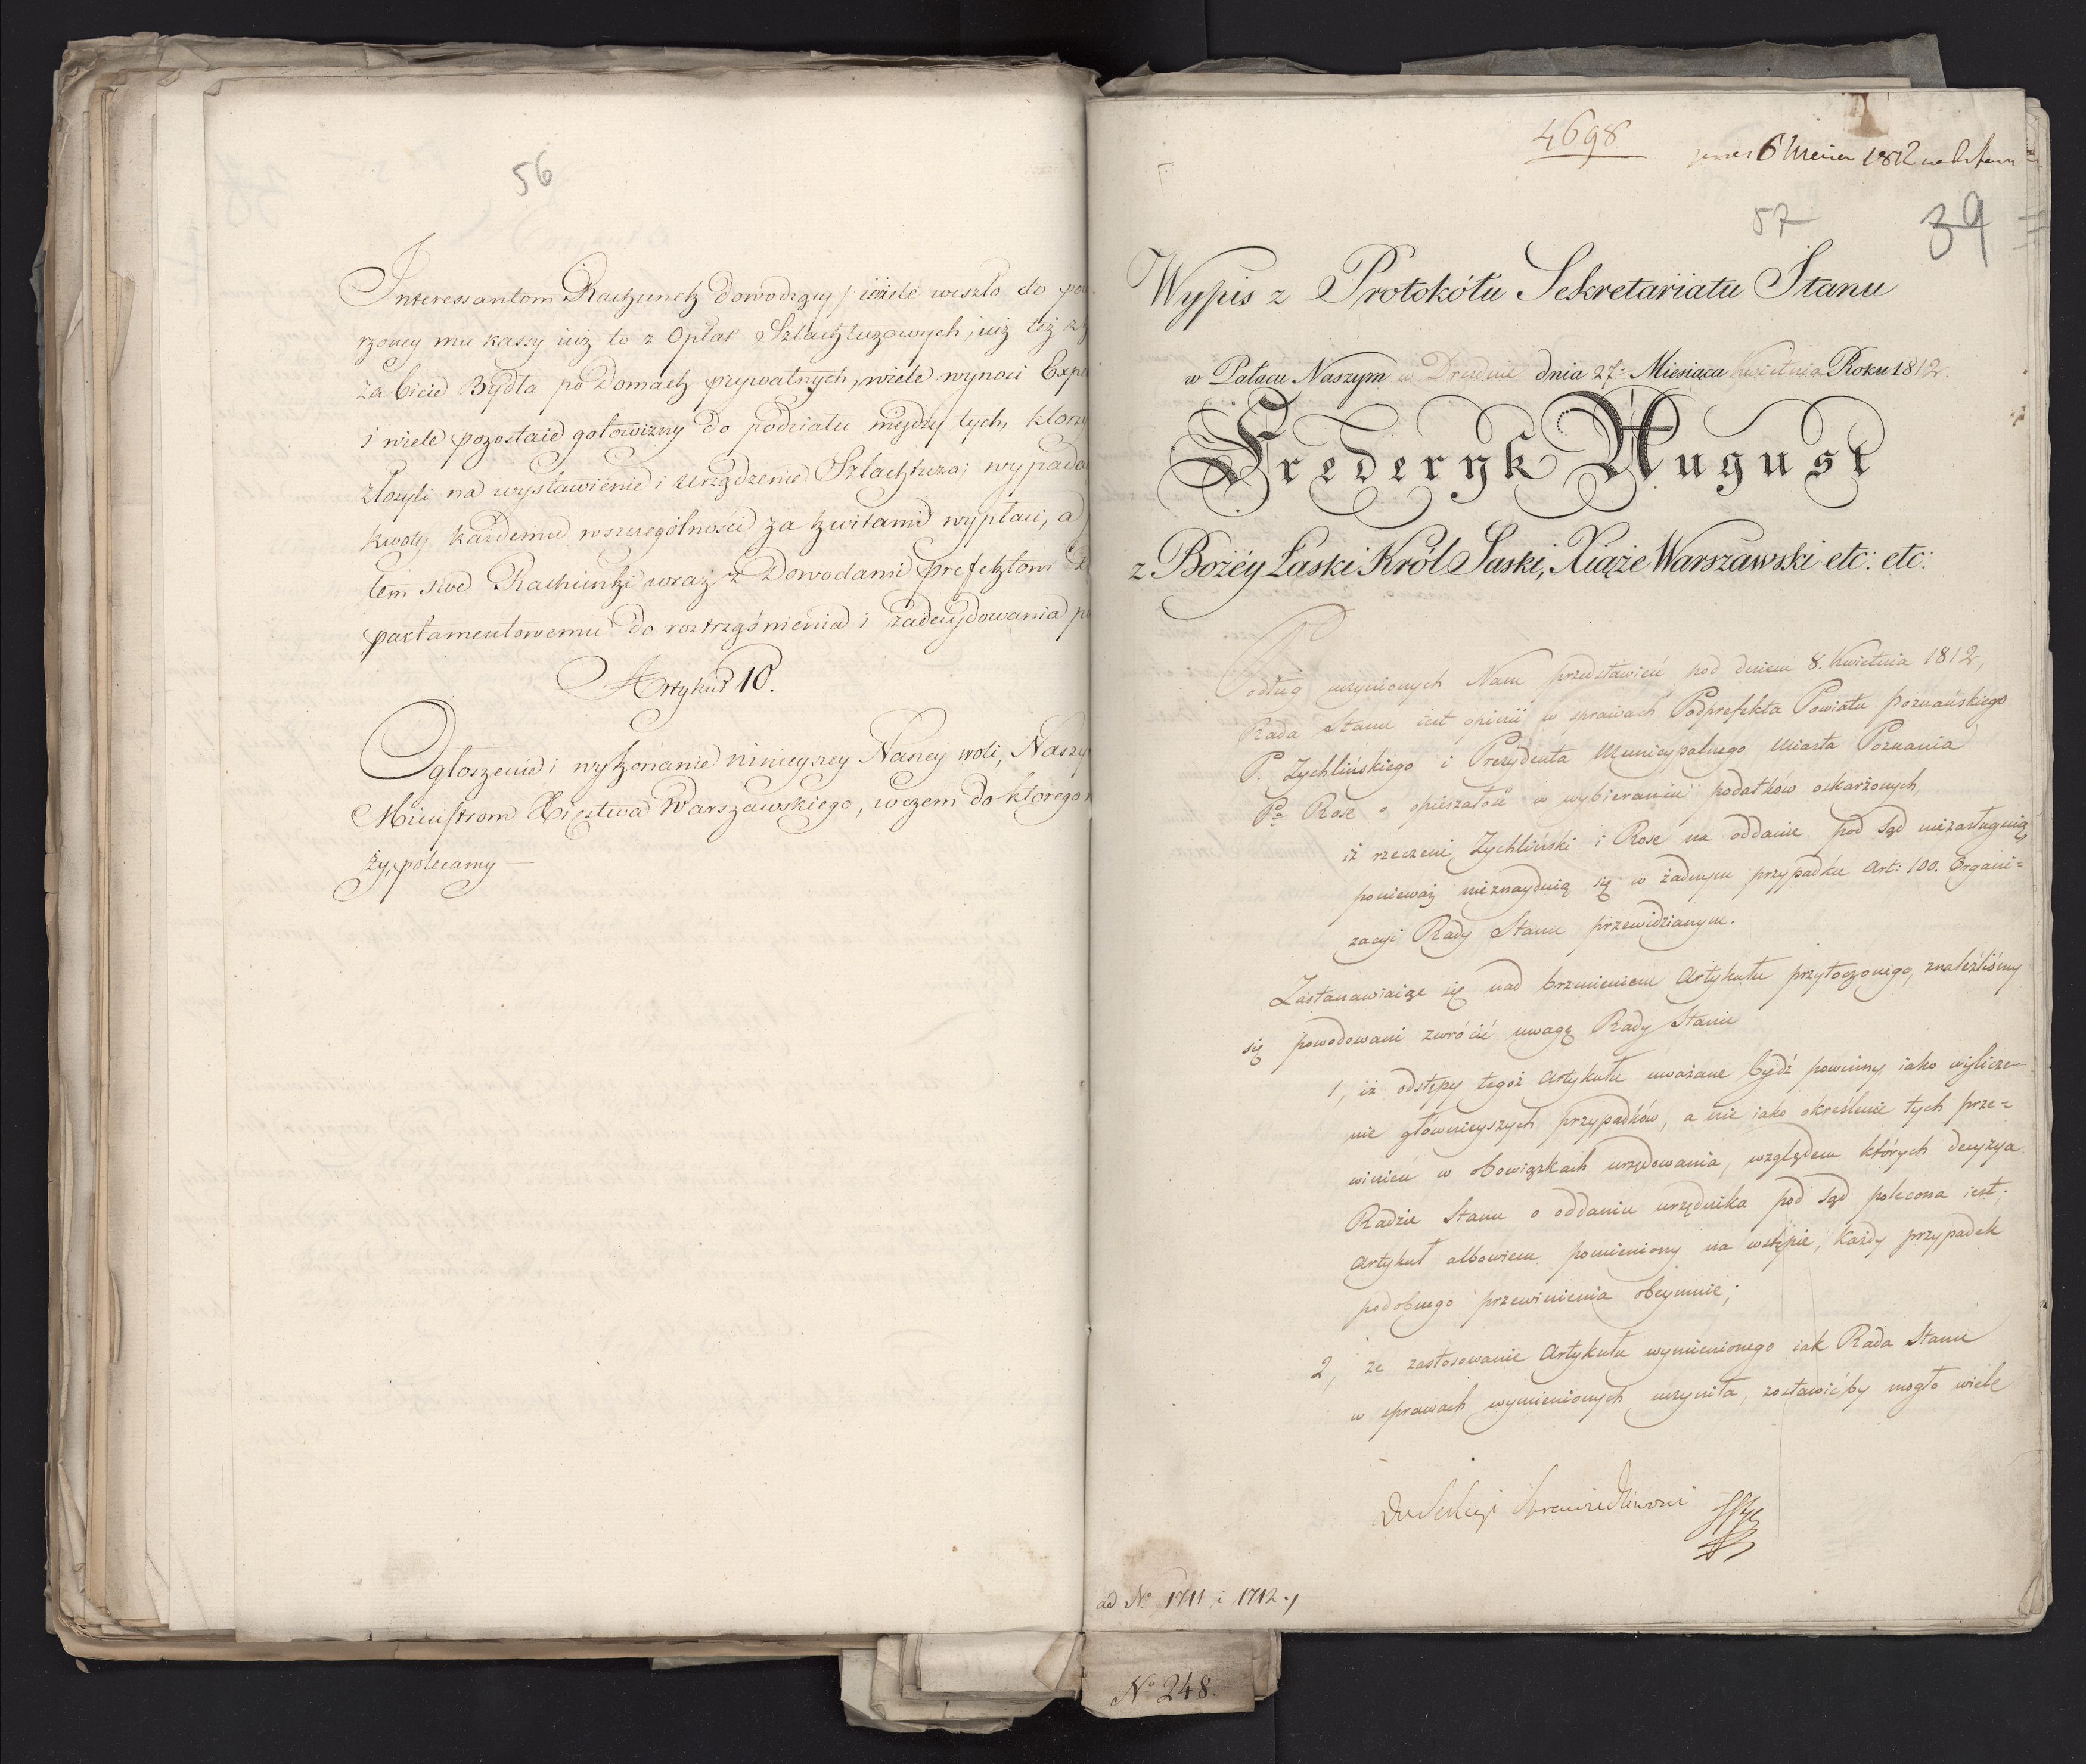 56
Interessantom Rachunek dowodzący, wiele weszło do po
rzoney mu kassy iuż to z Opłat Szlachtuzowych, iuż też z
zabicie Bydła po Domach prywatnych, wiele wynosi Exp
i wiele pozostaie gotowizny do podziału między tych, ktorzy
złożyli na wystawienie i urządzenie Szlachtuza; wypada
kwoty każdemu wszczególności za kwitami wypłaci, a
tem swe Rachunki wraz z Dowodami Prefektowi D
partamentowemu do roztrząśnienia i zadecydowania p
Artykuł 10.
Ogłoszenie i wykonanie ninieyszey Naszey woli, Naszy
Ministrom Xięztwa Warszawskiego, wczem do ktorego n
ży, polecamy
4698
6 1812
57
39
Wypis z Protokółu Sekretariatu Stanu
w Pałacu Naszym w Dreznie dnia 27. Miesiąca Kwietnia Roku 1812.
Frederyk August
z Bożéy Łaski Król Saski, Xiąże Warszawski etc: etc:
Podług uczynionych Nam przedstawień pod dniem 8. Kwietnia 1812,
Rada Stanu iest opinii w sprawach Podprefekta Powiatu poznańskiego
P. Zychlińskiego i Prezydenta Municypalnego Miasta Poznania
Pa Rose o opieszałość w wybieraniu podatków oskarżonych,
iż rzeczeni Zychliński i Rose na oddanie pod Sąd niezasługuią
ponieważ nieznayduią się w żadnym przypadku Art: 100. Organi=
zacyi Rady Stanu przewidzianym.
Zastanawiaiąc się nad brzmieniem Artykułu przytoczonego, znaleźliśmy
się powodowani zwrócić uwagę Rady Stanu
1, iż odstępy tegoż Artykułu uważane bydź powinny iako wylicze-
nie głównieyszych przypadków, a nie iako określenie tych prze=
winień w obowiązkach urzędowania, względem których decyzya
Radzie Stanu o oddaniu urzędnika pod Sąd polecona iest.
Artykuł albowiem pomieniony na wstępie, każdy przypadek
podobnego przewinienia obeymuie;
2, że zastosowanie Artykułu wymienionego iak Rada Stanu
w sprawach wymienionych uczyniła, zostawićby mogło wiele
Do Sekcyi Sprawiedliwości
ad No 1711 i 1712.
No 248.